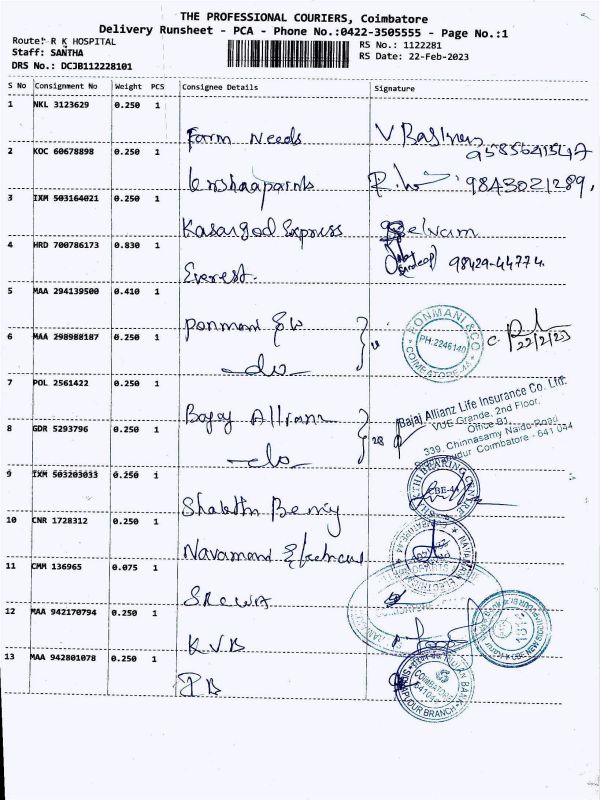 THE PROFESSIONAL COURIERS, Coimbatore
Delivery Runsheet - PCA - Phone No.:0422-3505555 - Page No.:1
Route: R K HOSPITAL
Staff: SANTHA
DRS No.: DCJB112228101
RS No.: 1122281
RS Date: 22-Feb-2023
S No Consignment No Weight PCS Consignee Details Signature
1 NKL 3123629 0.250 1
Farm Needs
2 KOC 60678898 0.250 1
9843021289
3 IXM 503164021 0.250 1
Kasargod Express Selvam
4 HRD 700786173 0.830 1
Everest 98429-44774
5 MAA 294139500 0.410 1
Ponmani & Co
RONMANI & CO
PH:2246140
COIMBATORE-44
22/2/23
6 MAA 298988187 0.250 1
-do-
7 POL 2561422 0.250 1
Bajaj Allianz
Bajaj Allianz Life Insurance Co. Ltd.
VUE Grande, 2nd Floor,
Office B1,
339, Chinnasamy Naidu Road
Coimbatore - 641 044
8 GDR 5293796 0.250 1
-do-
9 IXM 503203033 0.250 1
CBE-44
10 CNR 1728312 0.250 1
11 CMM 136965 0.075 1
12 MAA 942170794 0.250 1
K.V.B
13 MAA 942801078 0.250 1
I B